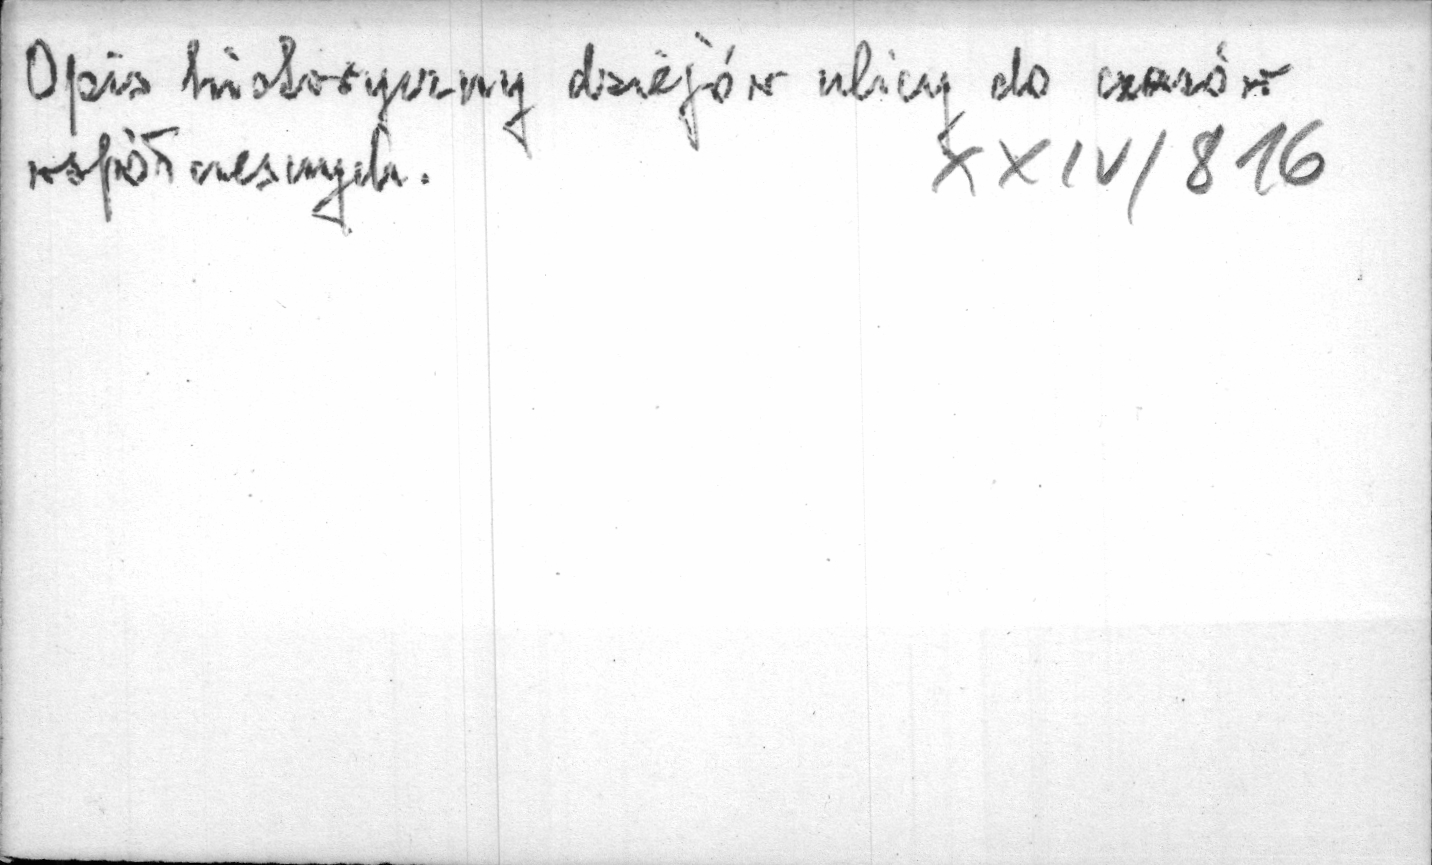 Opis historyczny dziejów ulicy do czasów
współczesnych. XXIV/816